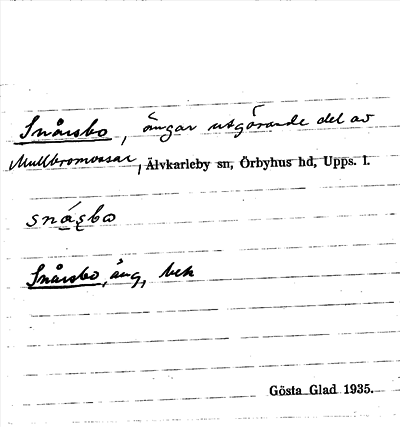 Snårsbo, ängar utgörande del av
Mullbromossar, Älvkarleby sn, Örbyhus hd, Upps. l.
snásbω
Snårsbo, äng, bek
Gösta Glad 1935.